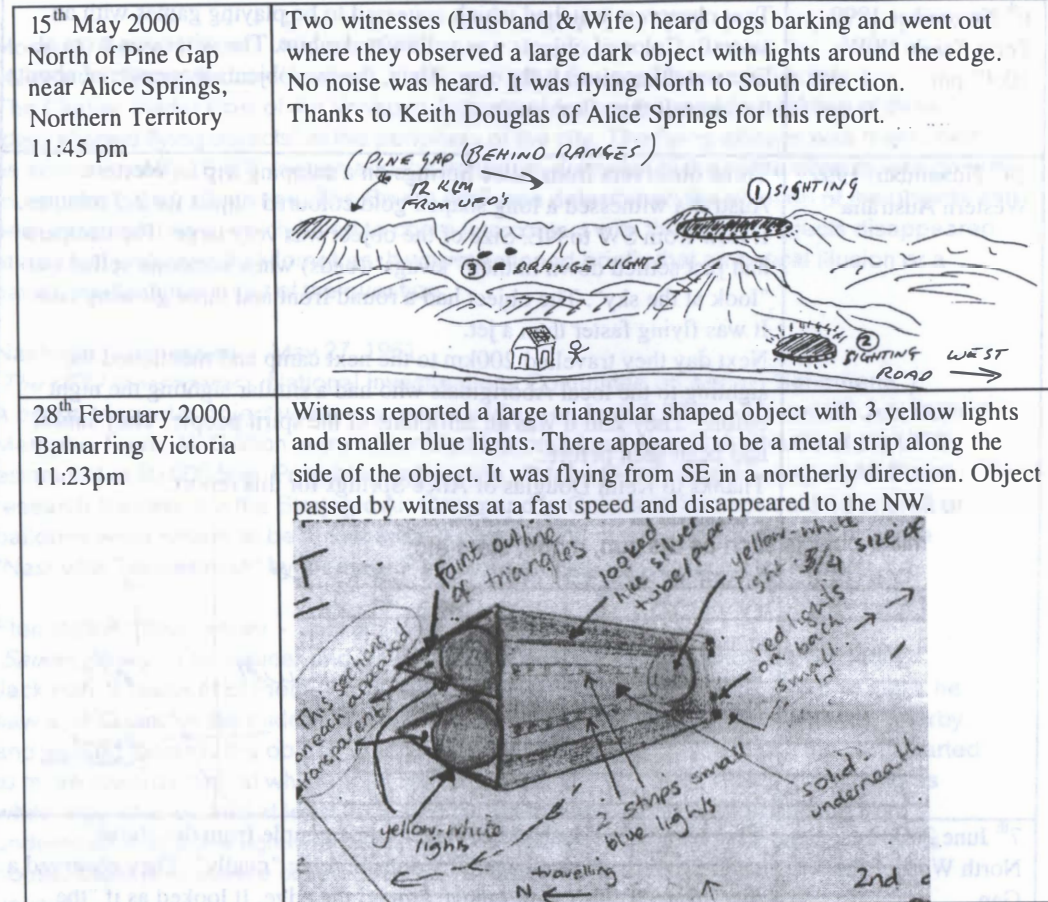 15th May 2000
North of Pine Gap
near Alice Springs,
Northern Territory
11:45 pm
Two witnesses (Husband & Wife) heard dogs barking and went out
where they observed a large dark object with lights around the edge.
No noise was heard. It was flying North to South direction.
Thanks to Keith Douglas of Alice Springs for this report.
PINE GAP (BEHIND RANGES)
12 KLM
FROM US
① SIGHTING
③ ORANGE LIGHTS
②
SIGHTING
WEST
ROAD
28th February 2000
Balnarring Victoria
11:23pm
Witness reported a large triangular shaped object with 3 yellow lights
and smaller blue lights. There appeared to be a metal strip along the
side of the object. It was flying from SE in a northerly direction. Object
passed by witness at a fast speed and disappeared to the NW
Faint outline
of triangles
looked
like silver
tube/pipe
yellow-white
light 3/4 size of
red lights
on back
small
this section
of each appeared
transparent
yellow-white
lights
2 strips small
blue lights
solid
underneath
travelling
N
2nd